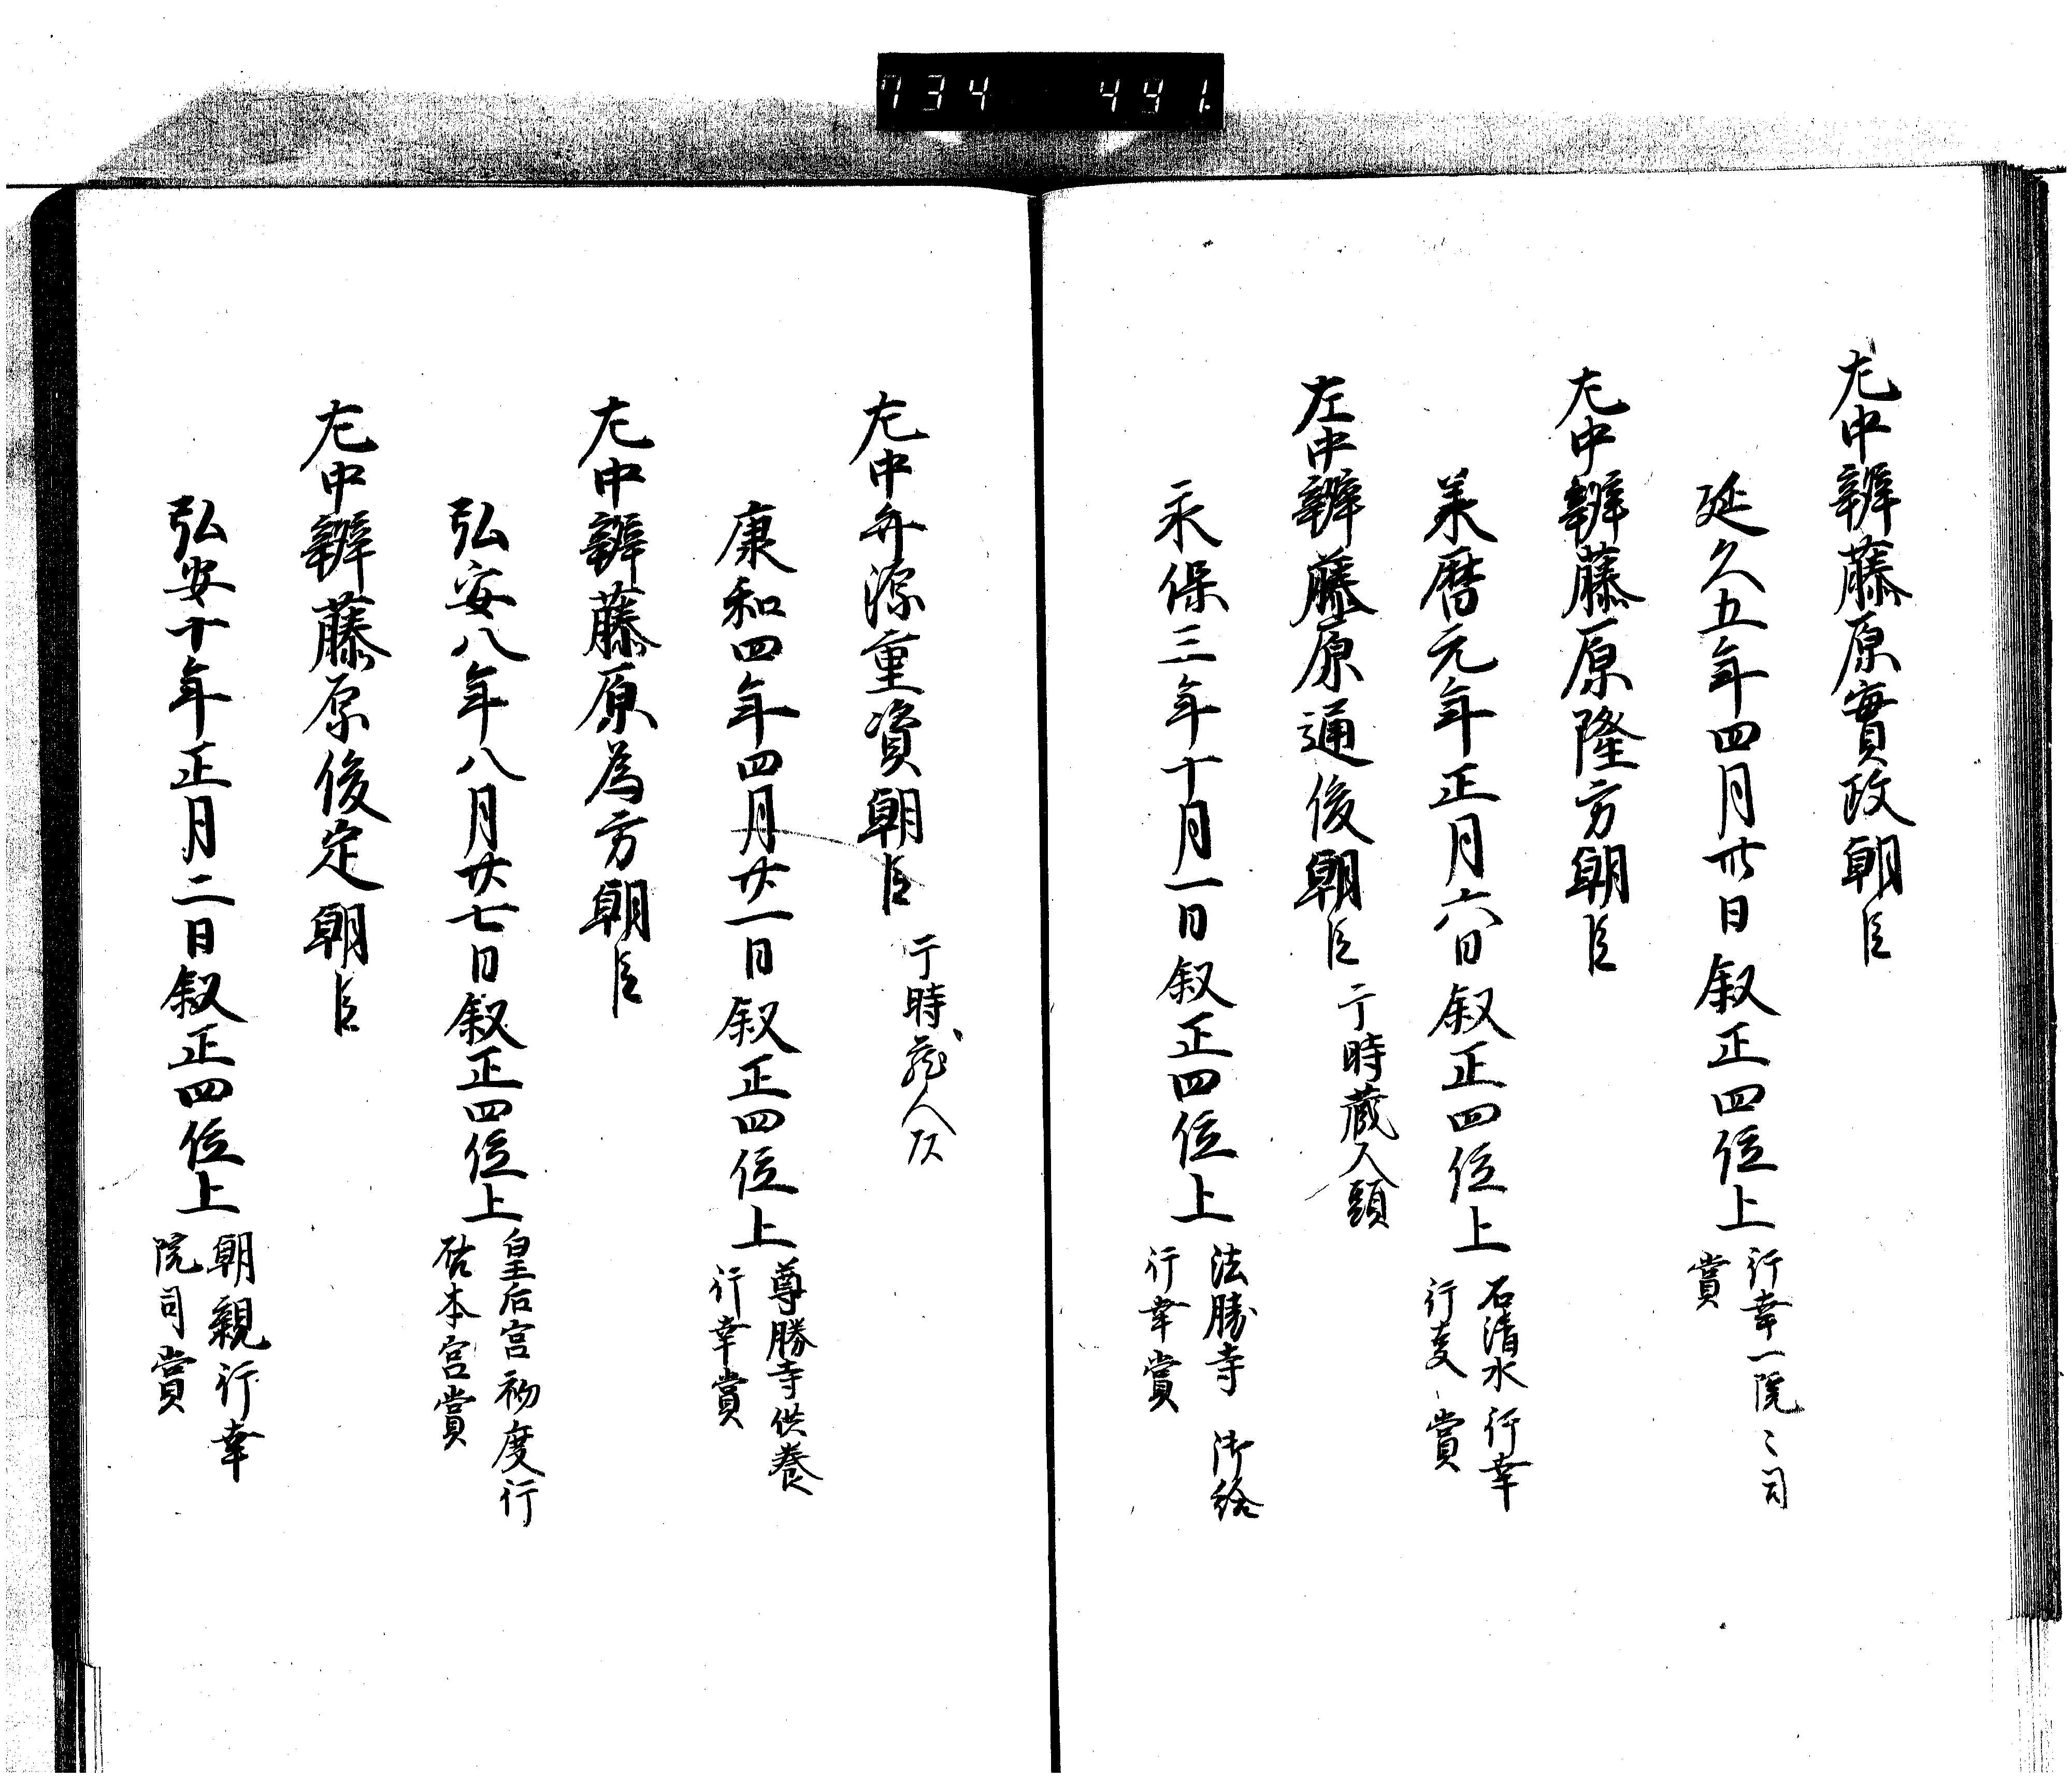 734 491
左中辨藤原實政朝臣
延久五年四月卅日叙正四位上
行幸一院〻司
賞
左中辨藤原隆方朝臣
承暦元年正月六日叙正四位上
石清水行幸
行事賞
左中辨藤原通俊朝臣
于時蔵人頭
永保三年十月一日叙正四位上
法勝寺御給
行幸賞
左中弁源重資朝臣
于時蔵人頭
康和四年四月廿一日叙正四位上
尊勝寺供養
行幸賞
左中辨藤原為方朝臣
弘安八年八月廿七日叙正四位上
皇后宮初度行
啓本宮賞
左中辨藤原俊定朝臣
弘安十年正月二日叙正四位上
朝覲行幸
院司賞